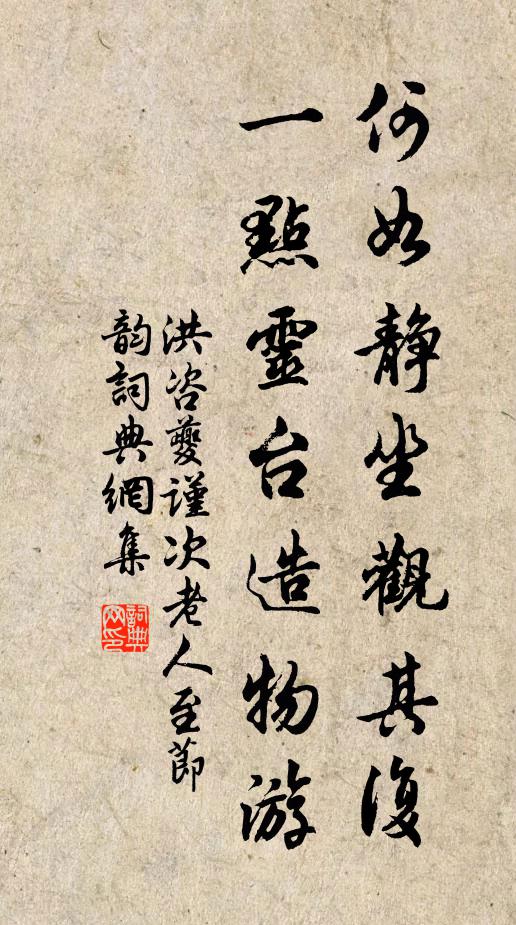 何如静坐觀其復
一點靈台造物游
洪咨夔謹次老人至節
韵詞典網集
詞典網印